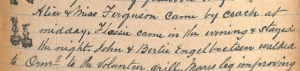 Alice & Miss Ferguson came by coach at
midday. Flossie came in the evening & stayed
the night. John & Bertie Engelbertson walked
to Ormd. to the Volunteer drill. Mares leg improving